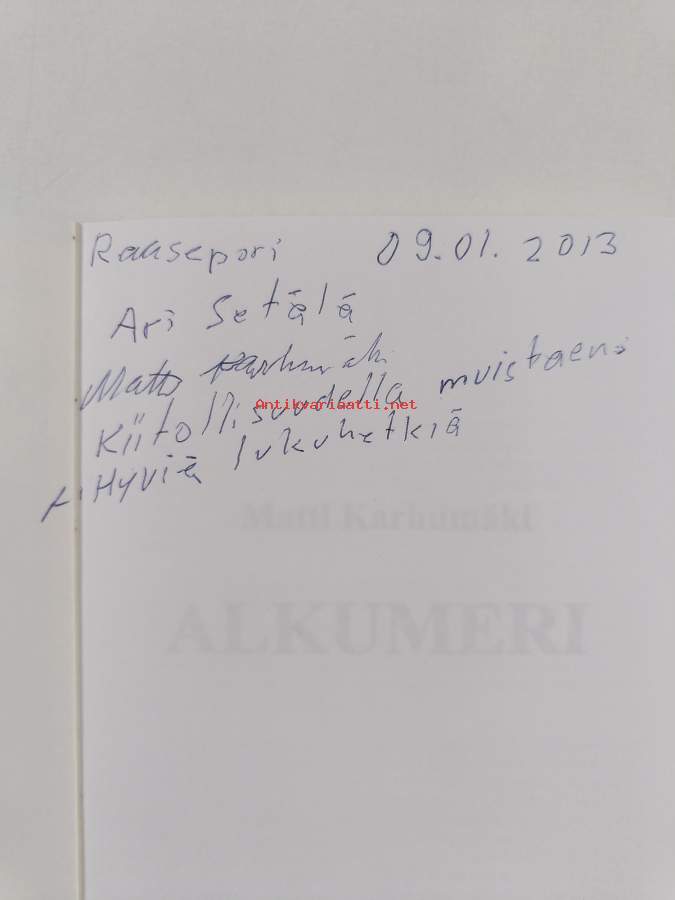 Raasepori 09.01.2013
Ari Setälä
Matti Karhumäki
Kiitollisuudella muistaen
Antikvariaatti.net
Hyviä lukuhetkiä
Matti Karhumäki
ALKUMERI